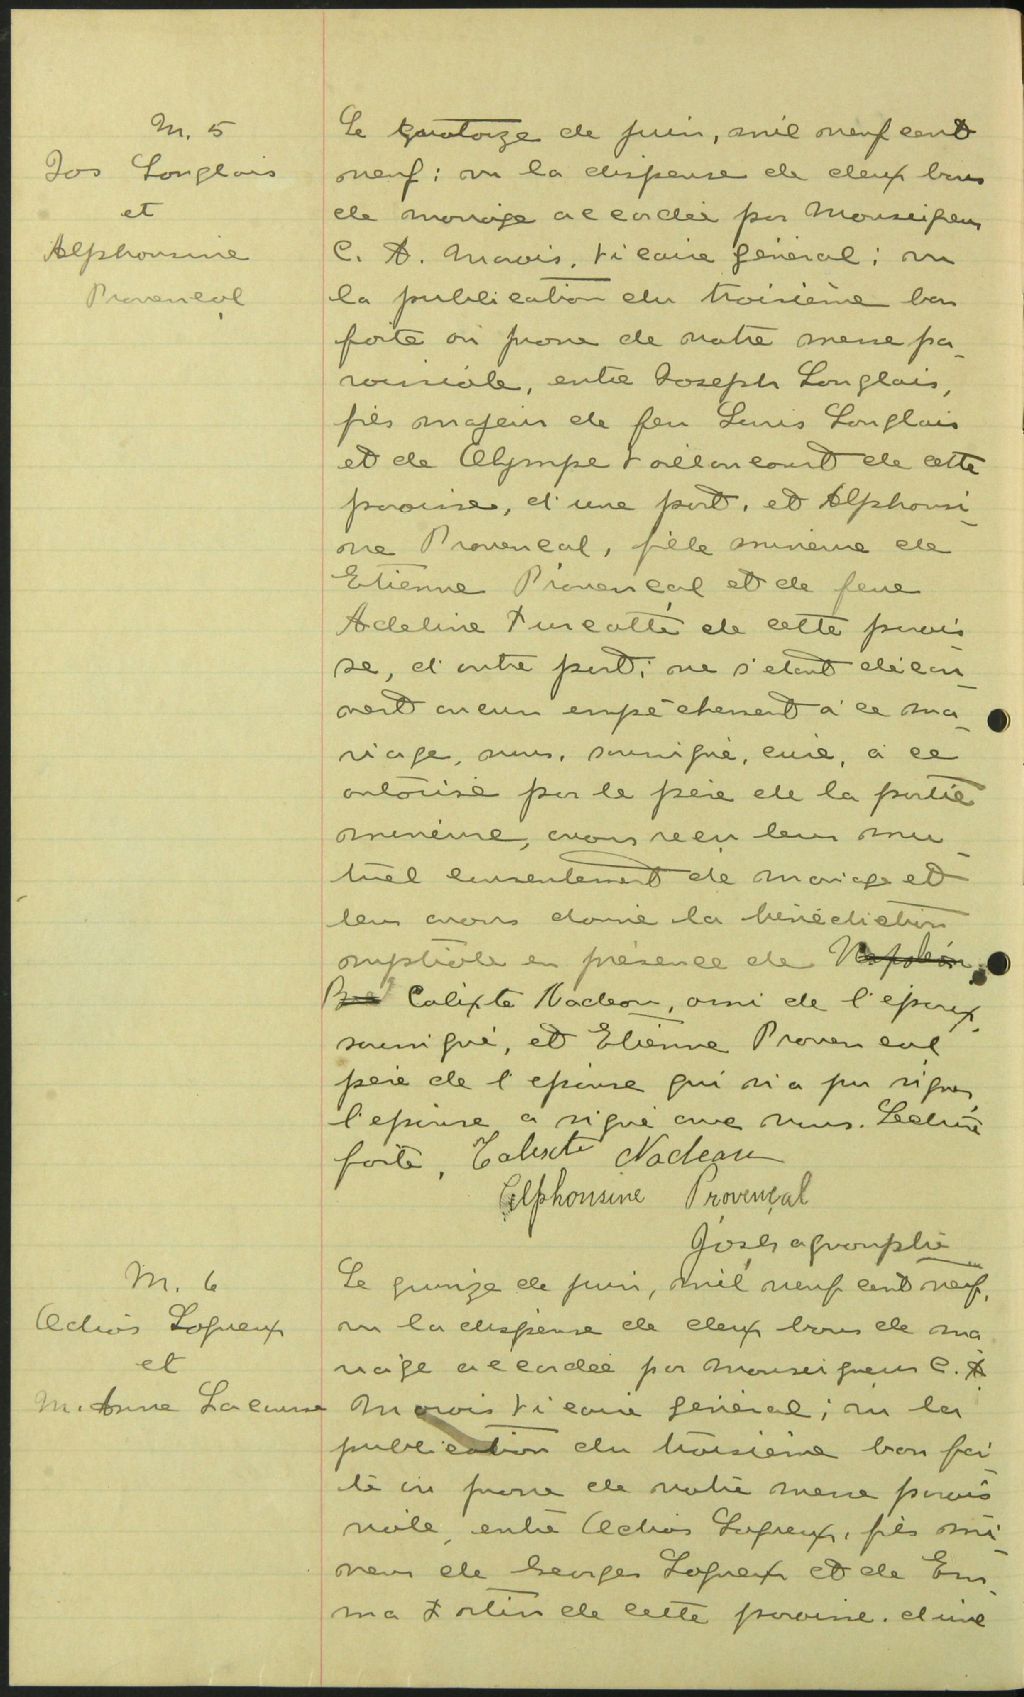 M. 5
Jos Langlais
et
Alphonsine
Provençal
Le quatorze de juin, mil neuf cent
neuf; vu la dispense de deux bans
de mariage accordée par Monseigneur
C. A. Marois, Vicaire général; vu
la publication du troisième ban
faite au prone de notre messe pa-
roissiale, entre Joseph Langlais,
fils majeur de feu Louis Langlais
et de Olympe Vaillancourt de cette
paroisse, d'une part, et Alphonsi-
ne Provencal, fille mineure de
Etienne Provençal et de feue
Adeline Turcotte de cette parois-
se, d'autre part; ne s'étant décou-
vert aucun empêchement à ce ma-
riage, nous, soussigné, curé, à ce
autorisé par le père de la partie
mineure, avons reçu leur mu-
tuel consentement de mariage et
leur avons donné la bénédiction
nuptiale en présence de Napoléon
Calixte Nadeau, ami de l'époux
soussigné, et Etienne Provencal
père de l'épouse qui n'a pu signer,
l'épouse a signé avec nous. Lecture
faite, Calixte Nadeau
Alphonsine Provençal
M. 6
et
M. Anne Lacourse
Le quinze de juin, mil neuf cent neuf,
vu la dispense de deux bans de ma
riage accordée par Monseigneur C. A
Marois Vicaire général; vu la
publication du troisième ban fai-
te au prone de notre messe parois
siale, entre Lagueux, fils mi-
neur de Georges Lagueux et de Em-
ma Fortin de cette paroisse, d'une